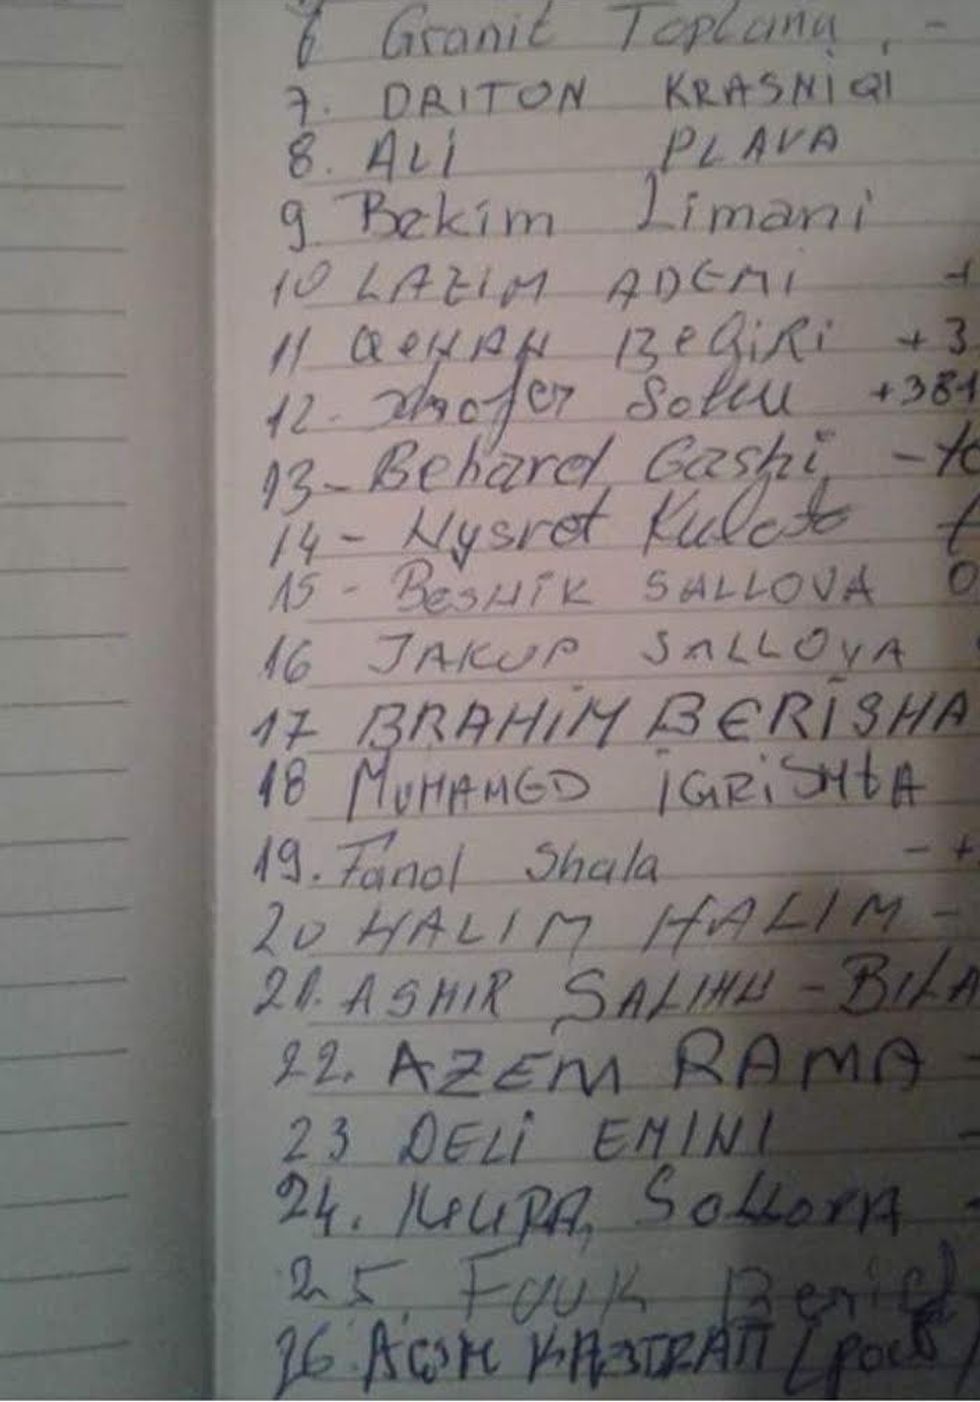 6 Granit Toplana, -
7. DRITON KRASNIQI
8. ALI PLAVA
9 Bekim Limani
10 LAZIM ADEMI +
11 QENAN BeQiRi +3
12- +381
13- Behard Gashi, -
14- Nysret
15- BesNiK SALLOVA
16 JAKUP SALLOVA
17 BRAHIM BERISHA
18 MUHAMED IGRISHtA
19. Fanol Shala - +
20 HALIM HALIM -
21. ASHIR SALIHU - BILA
22. AZEM RAMA -
23 DELI EMINI -
24.
25.
26.